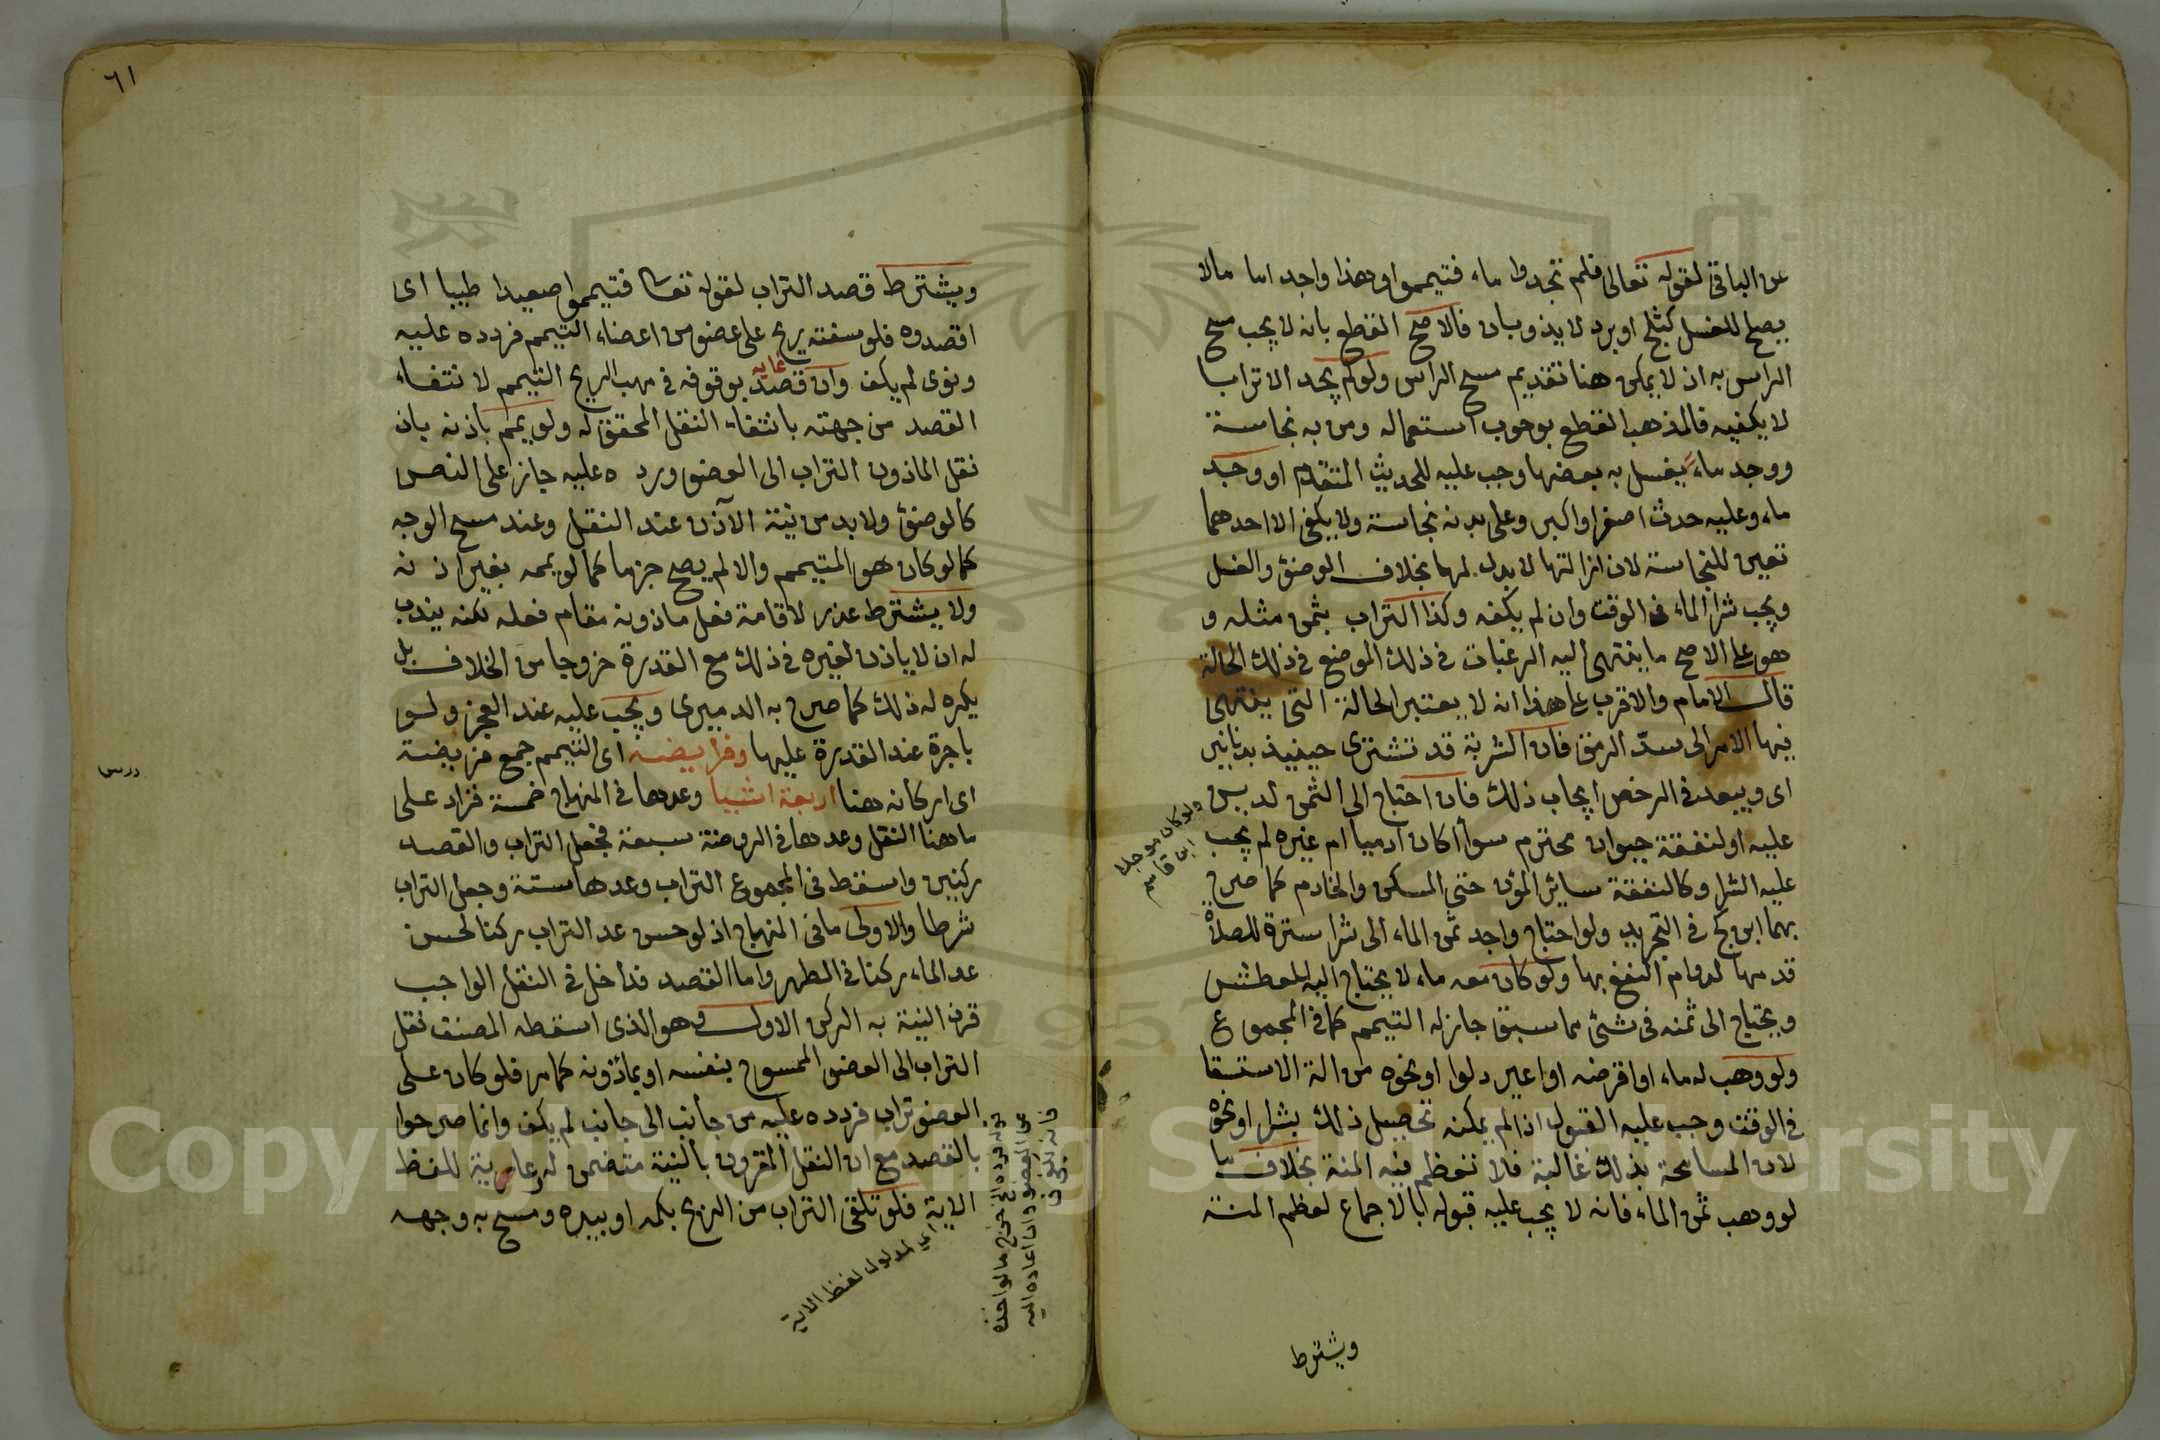 عن الباقي لقوله تعالى فلم تجدوا ماء فتيمموا وهذا واجد اما مالا
يصلح للغسل كثلج او برد لا يذوبان فالاصح القطع بانه لا يجب مسح
الراس به اذ لا يمكن هنا تقديم مسح الراس ولو لم يجد الا ترابا
لا يكفيه فالمذهب القطع بوجوب استعماله ومن به نجاسة
ووجد ماء يغسل به بعضها وجب عليه للحديث المتقدم او وجد
ماء وعليه حدث اصغر او اكبر وعلى بدنه نجاسة ولا يكفي الا احدهما
تعين للنجاسة لان ازالتها لا بدل لها بخلاف الوضوء والغسل
ويجب شرا الماء في الوقت وان لم يكفه وكذا التراب بثمن مثله و
هو على الاصح ما ينتهي اليه الرغبات في ذلك الموضع في ذلك الحالة
قال الامام والاقرب على هذا انه لا يعتبر الحالة التي ينتهي
فيها الامر الى سدّ الرمق فان الشربة قد تشترى حينيذ بدنانير
اى ويبعد في الرخص ايجاب ذلك فان احتاج الى الثمن لدين
عليه او لنفقة حيوان محترم سوأ اكان ادميا ام غيره لم يجب
عليه الشرا وكالنفقة سائر المؤن حتى المسكن والخادم كما صرح
بهما ابن كج في التجريد ولو احتاج واجد ثمن الماء الى شرا سترة للصلاة
قدمها لدوام النفع بها ولو كان معه ماء لا يحتاج اليه للعطش
ويحتاج الى ثمنه في شئ مما سبق جاز له التيمم كما في المجموع
ولو وهب له ماء او اقرضه او اعير دلوا او نحوه من الة الاستسقا
في الوقت وجب عليه القبول اذا لم يمكنه تحصيل ذلك بشرا او نحوه
لان المسامحة بذلك غالبة فلا تعظم فيه المنة بخلاف ما
لو وهب ثمن الماء فانه لا يجب عليه قبوله بالاجماع لعظم المنة
ولو كان موجلا
ابن قاسم
ويشترط
٦١
ويشترط قصد التراب لقوله تعالى فتيمموا صعيدا طيبا اى
اقصدوه فلو سفته ريح على عضو من اعضاء التيمم فردده عليه
ونوى لم يكف وان قصد بوقوفه في مهب الريح التيمم لانتفاء
القصد من جهته بانتفاء النقل المحقق له ولو يمم باذنه بان
نقل الماذون التراب الى العضو وردده عليه جاز على النص
كالوضؤ ولا بد من نية الآذن عند النقل وعند مسح الوجه
كما لو كان هو المتيمم والا لم يصح جزما كما لو يممه بغير اذنه
ولا يشترط عذر لاقامة فعل ماذونه مقام فعله لكنه يندب
له ان لا ياذن لغيره في ذلك مع القدرة خروجا من الخلاف بل
يكره له ذلك كما صرح به الدميرى ويجب عليه عند العجز ولو
باجرة عند القدرة عليها وفرايضه اى التيمم جمع فريضة
اى اركانه هنا اربعة اشيا وعدها في المنهاج خمسة فزاد على
ما هنا النقل وعدها في الروضة سبعة فجعل التراب والقصد
ركنين واسقط في المجموع التراب وعدها ستة وجعل التراب
شرطا والاولى ما في المنهاج اذ لو حسن عد التراب ركنا لحسن
عد الماء ركنا في الطهر واما القصد فداخل في النقل الواجب
قرن النية به الركن الاول وهو الذى اسقطه المصنف نقل
التراب الى العضو الممسوح بنفسه او بماذونه كما مر فلو كان على
العضو تراب فردده عليه من جانب الى جانب لم يكف وانما صرحوا
بالقصد مع ان النقل المقرون بالنية متضمن له رعاية للفظ
الاية فلو تلقى التراب من الريح بكمه او بيده ومسح به وجهه
درس
اي لمدلول لفظ الاية
قوله فردده الخ خرج ما لو اخذه
عن العضو واعاده اليه
Copyright © King Saud University
1957